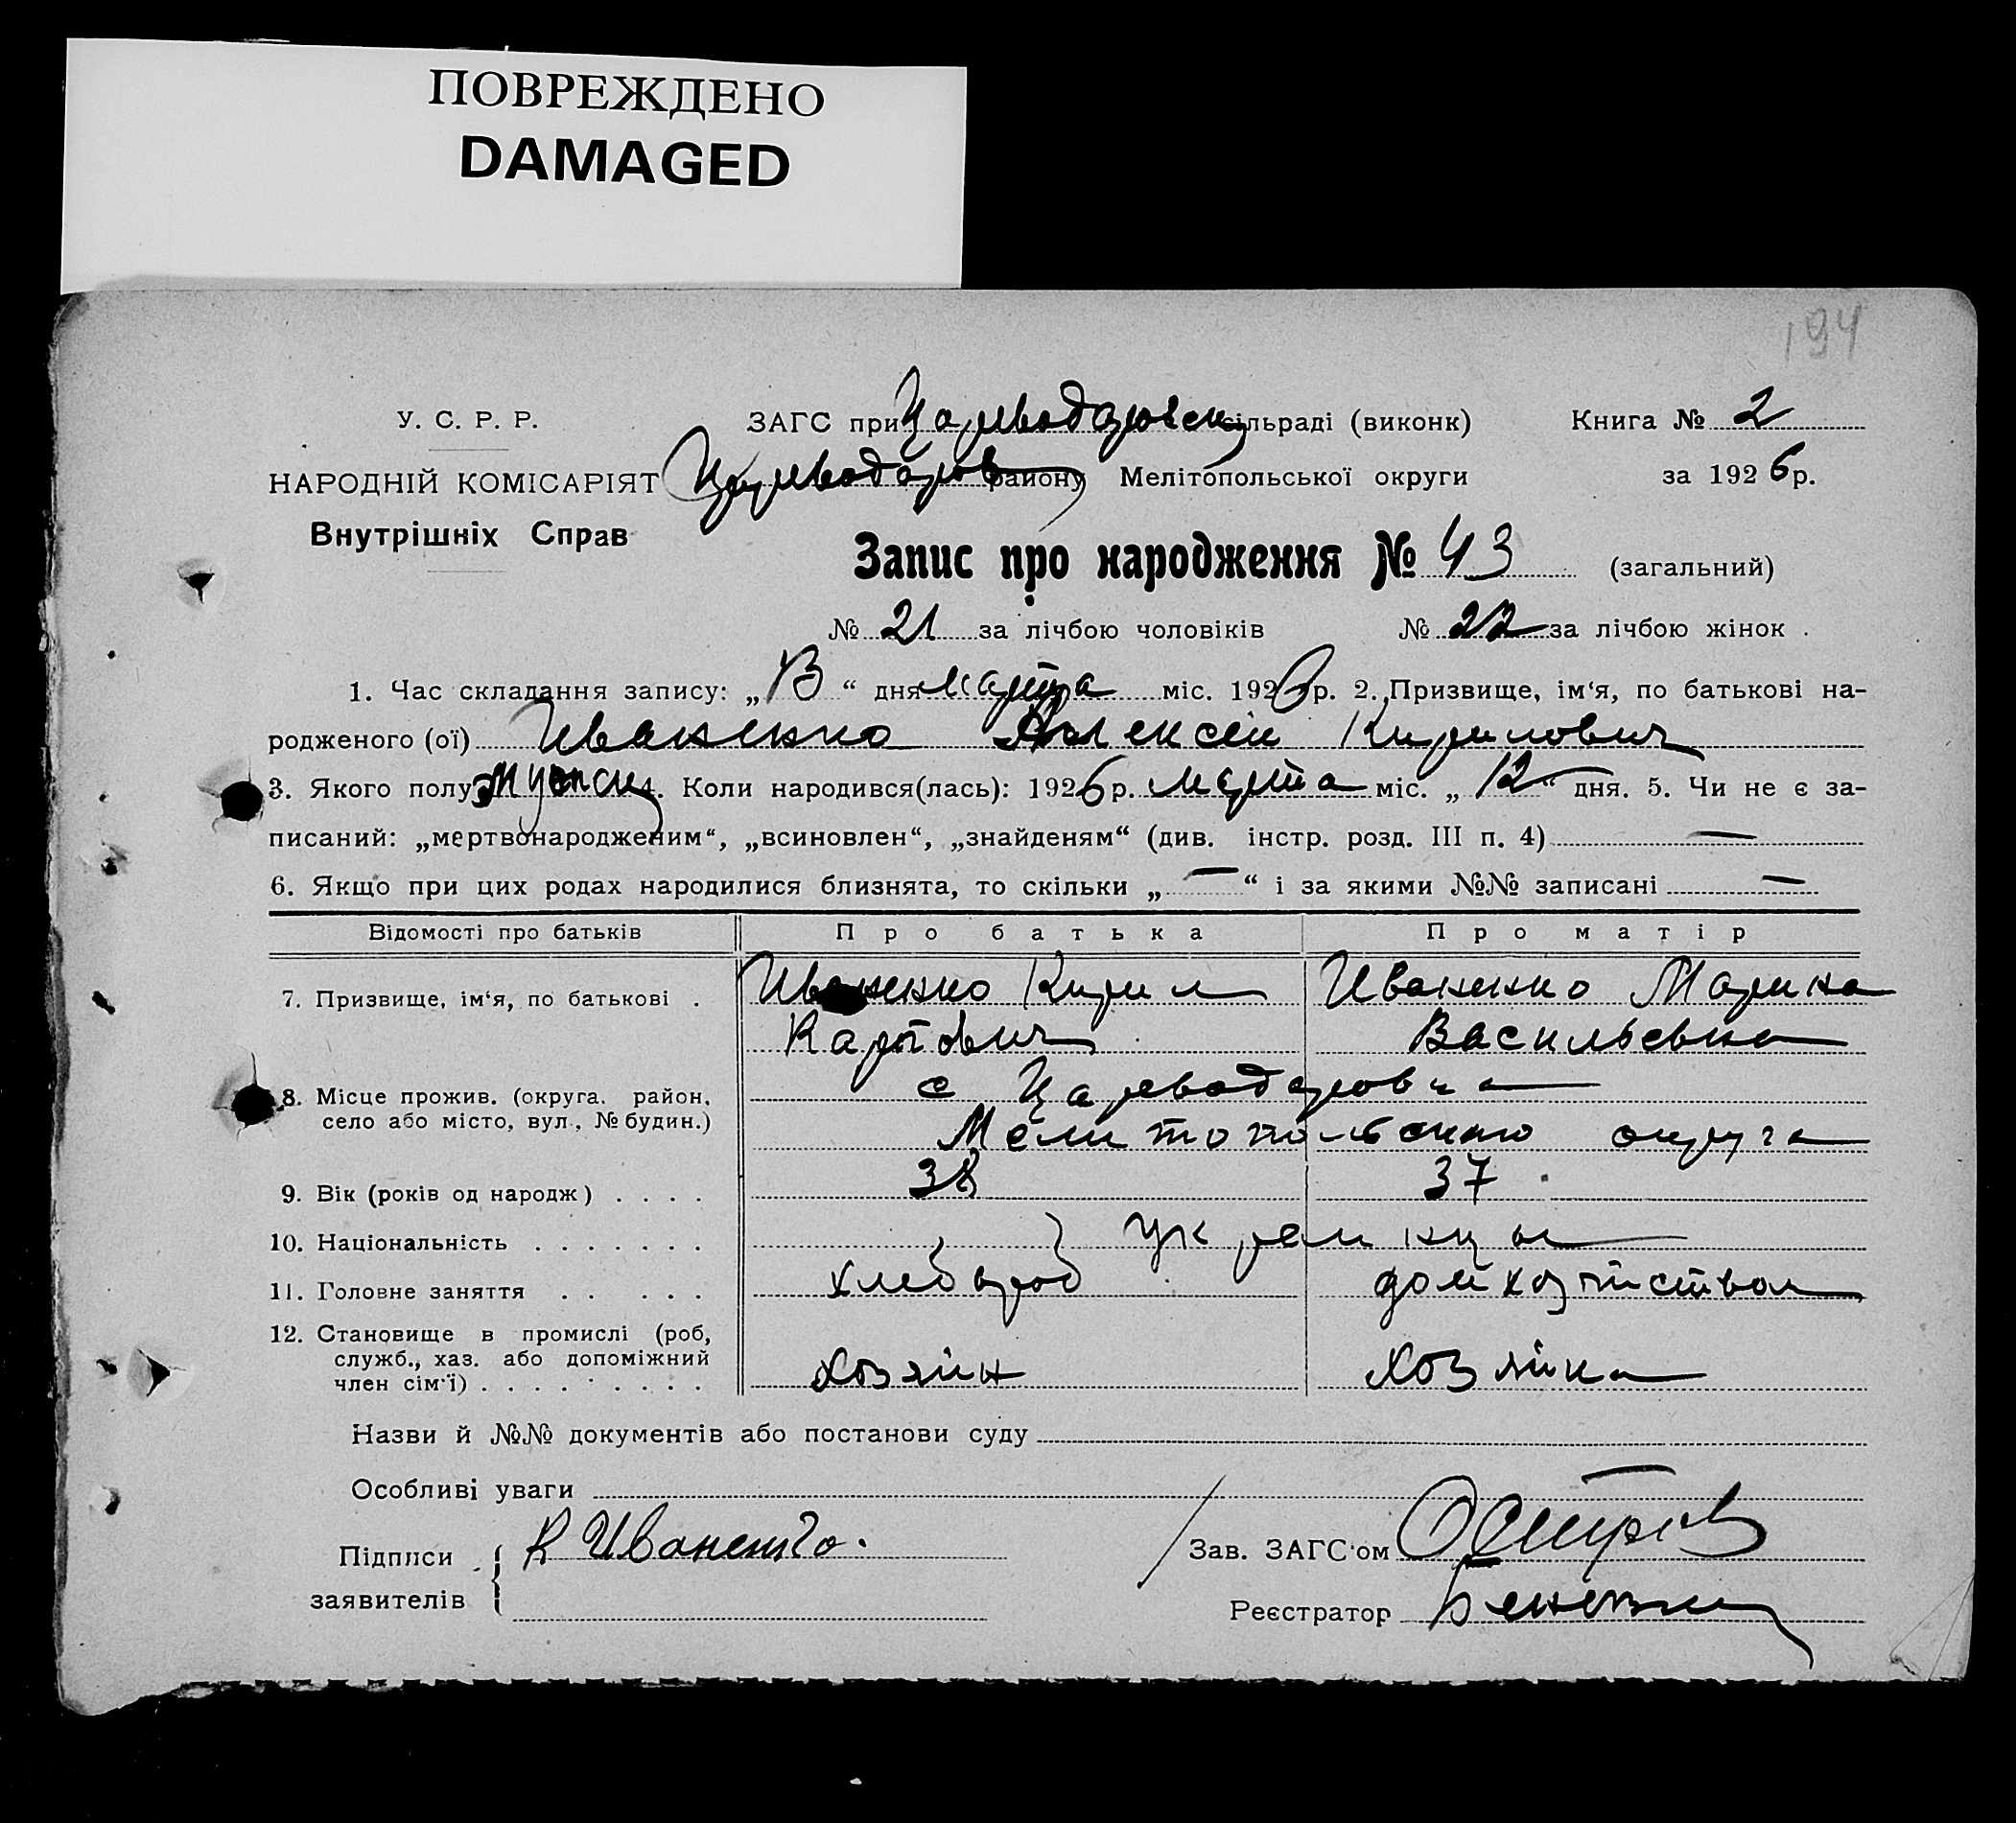 ПОВРЕЖДЕНО
DAMAGED
194
У. С. Р. Р. ЗАГС при Цареводаровск сільраді (виконк) Книга № 2
НАРОДНІЙ КОМІСАРІЯТ Цареводаров району Мелітопольської округи за 1926 р.
Внутрішніх Справ
Запис про народження № 43 (загальний)
№ 21 за лічбою чоловіків № 22 за лічбою жінок .
1. Час складання запису: „ “ дня марта міс. 1926 р. 2. Призвище, ім‘я, по батькові на-
родженого (ої) Иваненко Алексей Кирилович
3. Якого полу Мужск 4. Коли народився(лась): 1926 р. марта міс. „ 12 “ дня. 5. Чи не є за-
писаний: „мертвонародженим“, „всиновлен“, „знайденям“ (див. інстр. розд. III п. 4) —
6. Якщо при цих родах народилися близнята, то скільки „ — “ і за якими №№ записані —
Відомості про батьків Про батька Про матір
7. Призвище, ім‘я, по батькові . Иваненко Кирил Иваненко Марина
Карпович Васильевна
8. Місце прожив. (округа. район, с Цареводаровка
село або місто, вул., № будин.) Мелитопольского округа
9. Вік (років од народж) . . . . 38 37
10. Національність . . . . . . . украинцы
11. Головне заняття . . . . . хлебороб домхозяйством
12. Становище в промислі (роб,
служб., хаз. або допоміжний
член сім‘ї) . . . . . . . . . хозяин хозяйка
Назви й №№ документів або постанови суду
Особливі уваги
Підписи К Иваненко. Зав. ЗАГС‘ом
заявителів Реєстратор